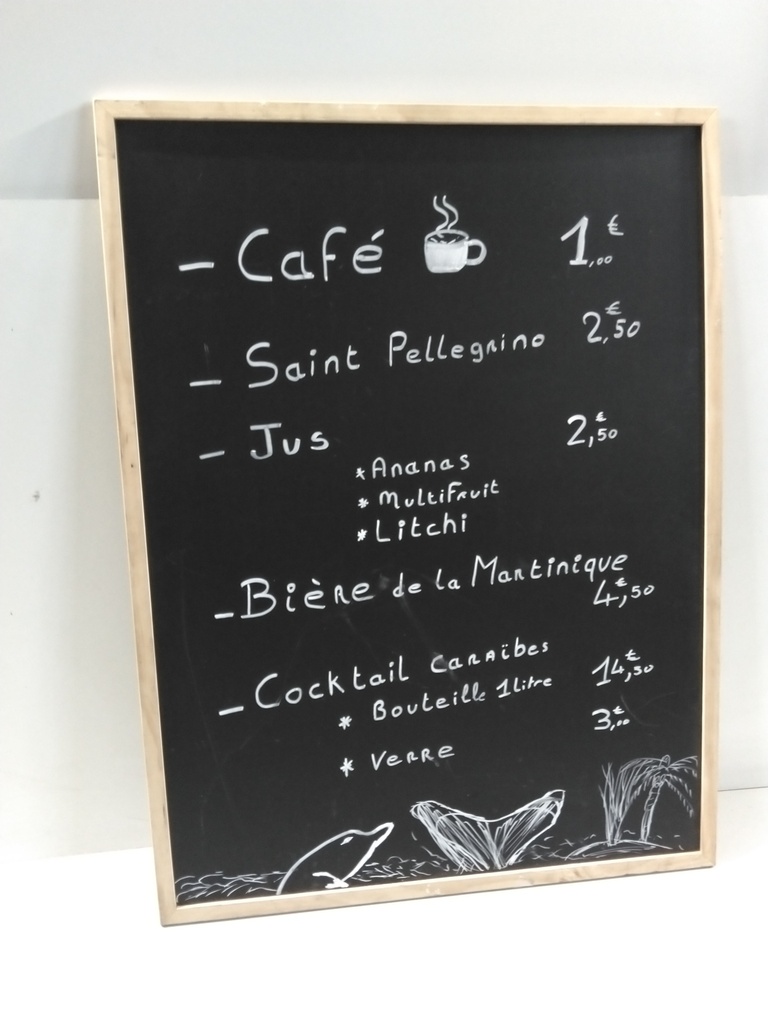 - Café 1,00 €
- Saint Pellegrino 2,50 €
- Jus 2,50 €
* Ananas
* Multifruit
* Litchi
- Bière de la Martinique
4,50 €
- Cocktail Caraïbes
* Bouteille 1 litre 14,50 €
* Verre 3,00 €